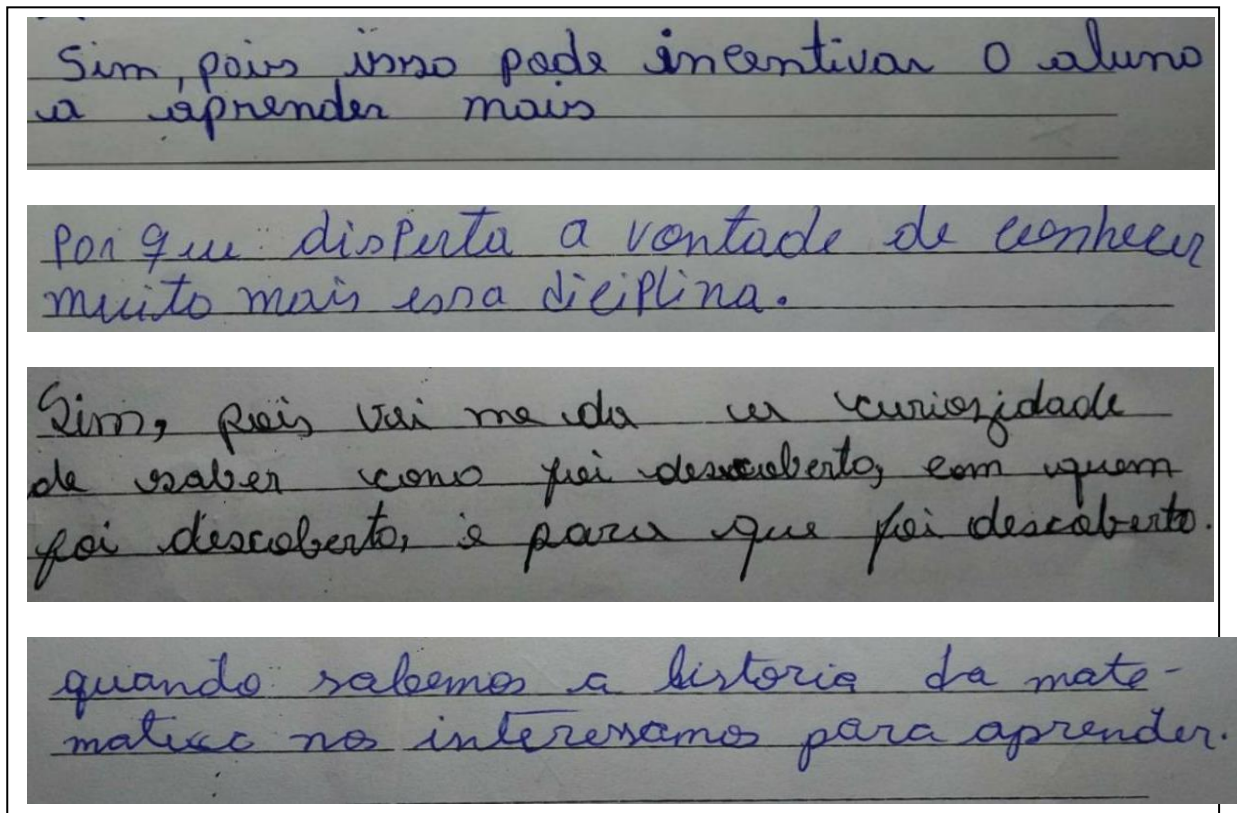 Sim, pois isso pode incentivar o aluno
a aprender mais
Por que disperta a vontade de conhecer
muito mais essa diciplina.
Sim, pois vai me da a curiozidade
de saber como foi descoberto, com quem
foi descoberto, e para que foi descoberto.
quando sabemos a historia da mate-
matica nos interessamos para aprender.